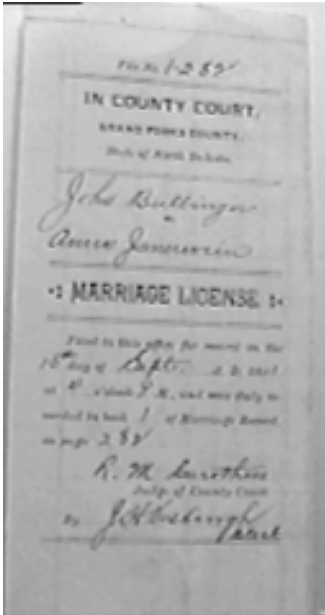 File No 1-282
IN COUNTY COURT,
GRAND FORKS COUNTY,
State of North Dakota.
John Bullinger
Anna
MARRIAGE LICENSE
Filed in this office for record on the
15th day of Sept. A. D.
at o'clock M., and was duly re-
corded in book 1 of Marriage Record,
on page 282
R. M. Carothers
Judge of County Court
By